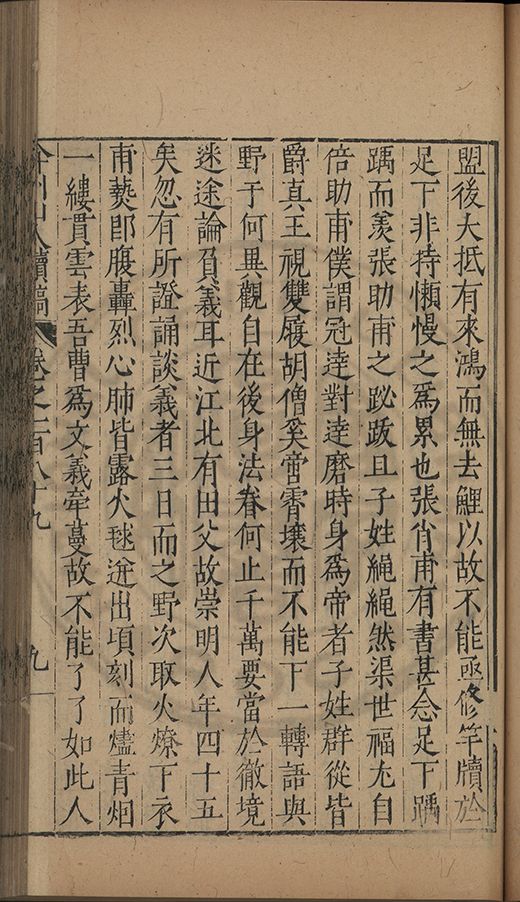 盟後大抵有來鴻而無去鯉以故不能亟修竿牘於
足下非持懶慢之爲累也張肖甫有書甚念足下踽
踽而羨張助甫之跛跋且子姓繩繩然渠世福尤自
倍助甫僕謂冠達對達磨時身爲帝者子姓群從皆
爵真王視雙屨胡僧奚啻霄壤而不能下一轉語與
野干何異觀自在後身法眷何止千萬要當於徹境
迷途論負義耳近江北有田父故崇明人年四十五
矣忽有所證誦談義者三日而之野次取火燎下衣
甫爇郎腹轟烈心肺皆露火毬迸出頃刻而燼青烟
一縷貫雲表吾曹爲文義牽蔓故不能了了如此人
弇州山人續稿
卷之一百八十九
九